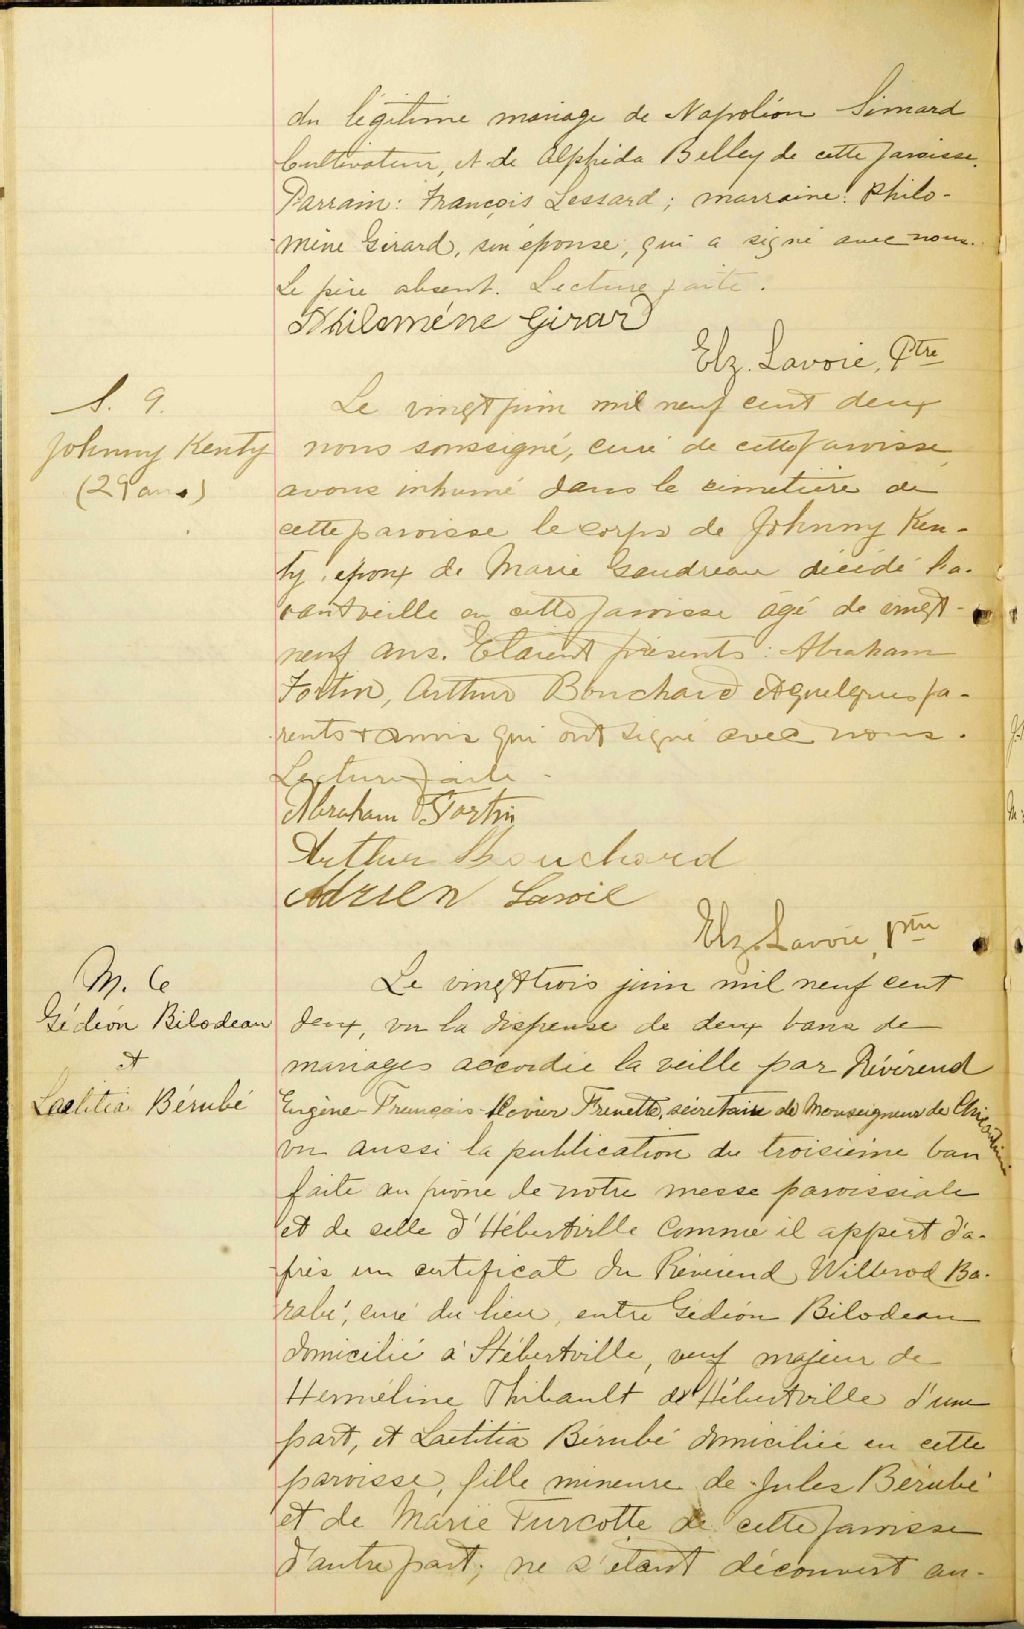 du légitime mariage de Napoléon Simard
Cultivateur, et de Alphida Belley de cette paroisse.
Parrain: François Lessard; marraine: Philo-
mène Girard, son épouse, qui a signé avec nous.
Le père absent. Lecture faite.
Philomène Girard
Elz. Lavoie, Ptre
S. 9.
Johnny Kenty
(29 ans)
Le vingt juin mil neuf cent deux
nous soussigné, curé de cette paroisse
avons inhumé dans le cimetière de
cette paroisse le corps de Johnny Ken-
ty, époux de Marie Gaudreau décédé l'a-
vant veille en cette paroisse âgé de vingt-
neuf ans. Etaient présents: Abraham
Fortin, Arthur Bouchard et quelques pa-
rents & amis qui ont signé avec nous.
Lecture faite.
Abraham Fortin
Arthur Bouchard
Adrien Lavoie
Elz. Lavoie, ptre
M. 6
Gédéon Bilodeau
et
Laetitia Bérubé
Le vingt trois juin mil neuf cent
deux, vu la dispense de deux bans de
mariages accordée la veille par Révérend
Eugène-François-Xavier Frenette, sécretaire de Monseigneur de Chicoutimi
vu aussi la publication du troisième ban
faite au prône de notre messe paroissiale
et de celle d'Hébertville comme il appert d'a-
près un certificat du Révérend Wilbrod Ba-
rabé, curé du lieu, entre Gédéon Bilodeau
domicilié à Hébertville, veuf majeur de
Herméline Thibault de Hébertville d'une
part, et Laetitia Bérubé domiciliée en cette
paroisse, fille mineure de Jules Bérubé
et de Marie Turcotte de cette paroisse
d'autre part; ne s'étant découvert au-